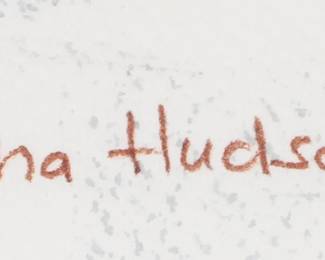 na Hudso